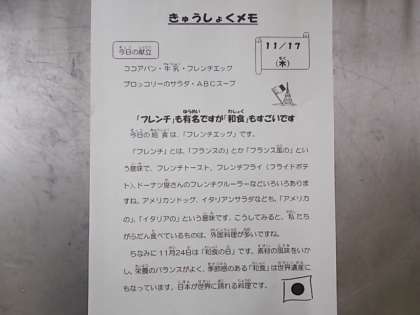 きゅうしょくメモ
今日の献立
11/17
(水)
ココアパン・牛乳・フレンチエッグ
ブロッコリーのサラダ・ABCスープ
「フレンチ」も有名ですが「和食」もすごいです
今日の給食は、「フレンチエッグ」です。
「フレンチ」とは、「フランスの」とか「フランス風の」とい
う意味で、フレンチトースト、フレンチフライ(フライドポテ
ト)、ドーナツ屋さんのフレンチクルーラーなどいろいろありま
すね。アメリカンドッグ、イタリアンサラダなども、「アメリカ
の」、「イタリアの」という意味です。こうしてみると、私たち
がふだん食べているものは、外国料理が多いですね。
ちなみに11月24日は「和食の日」です。素材の風味をいか
し、栄養のバランスがよく、季節感のある「和食」は世界遺産に
もなっています。日本が世界に誇れる料理です。